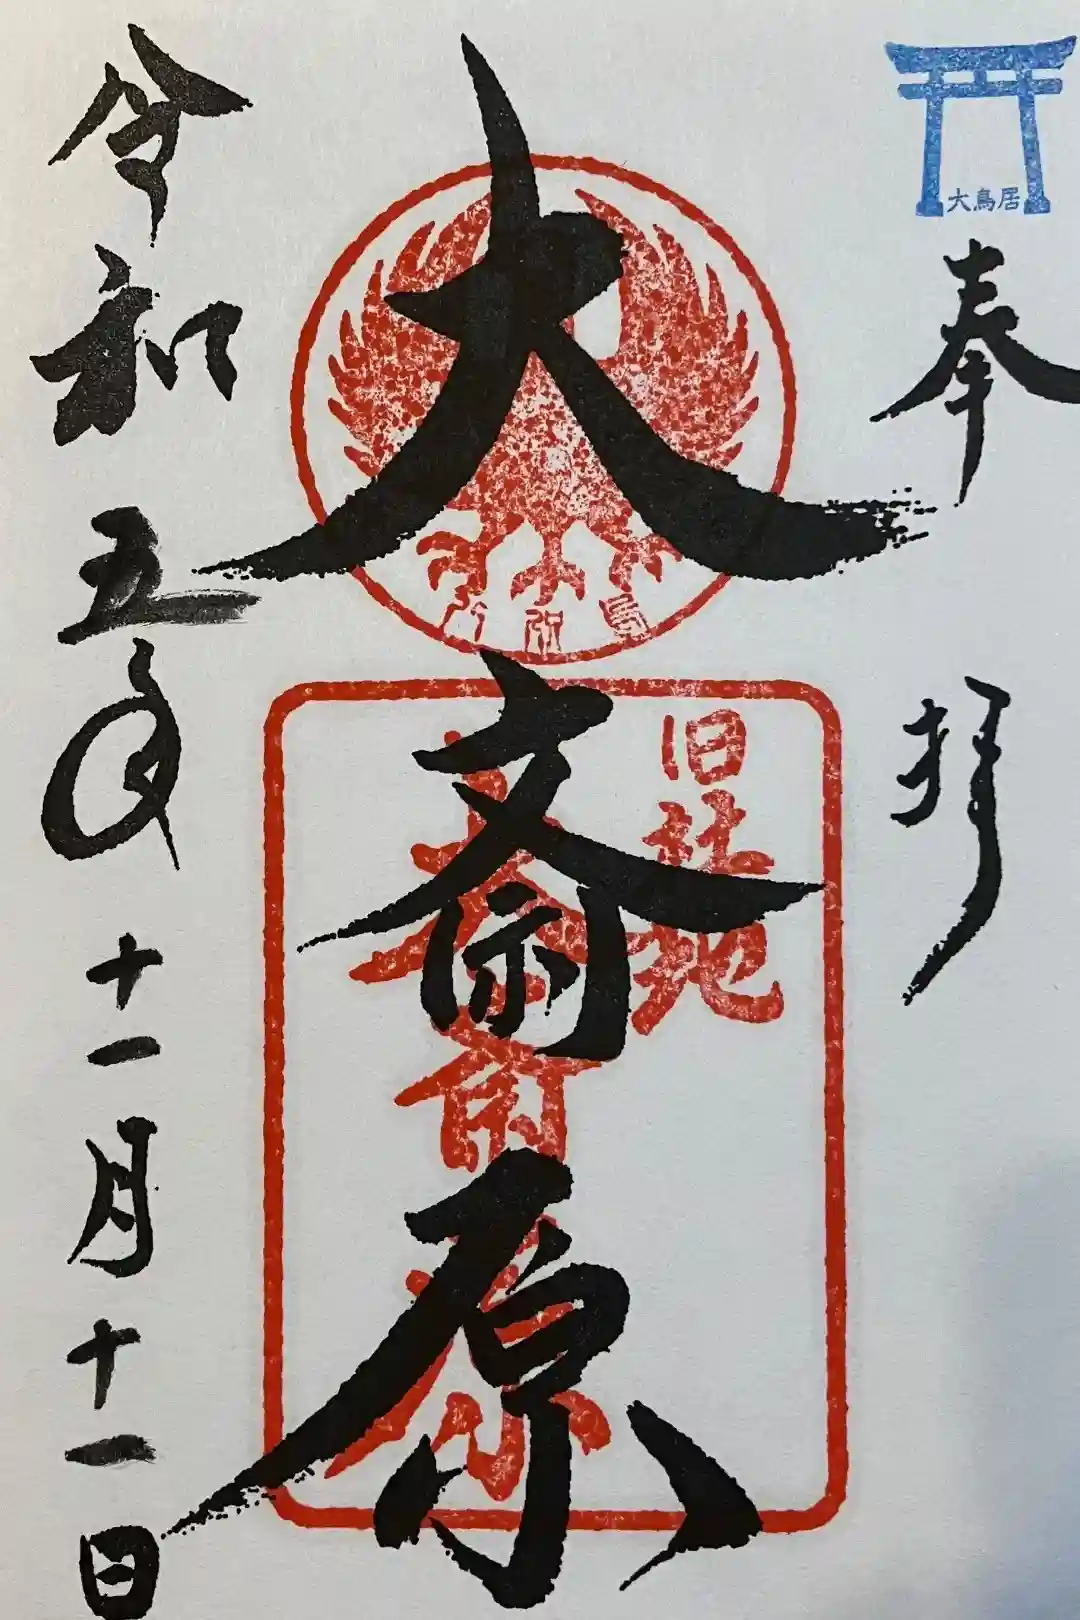 大鳥居
奉拝
旧社地
大斎原
大斎原
令和五年十一月十一日